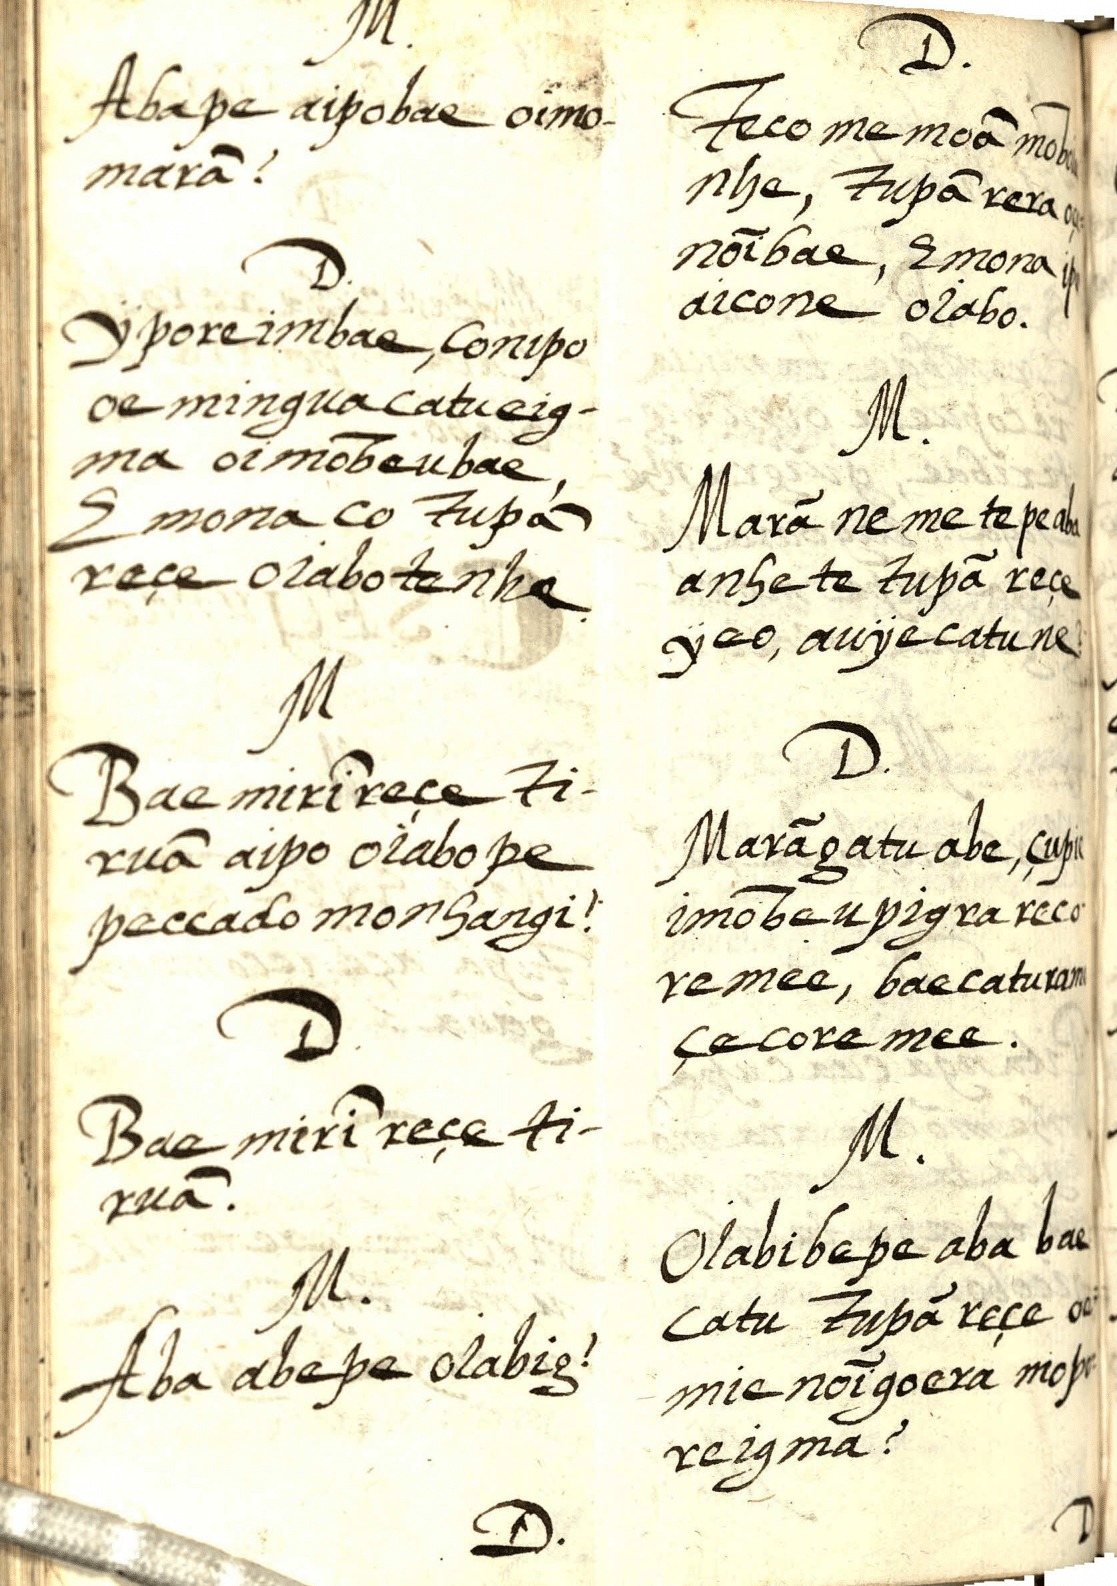 M.
Abape aipobae oimo-
marã?
D.
Ÿporeimbae, Conipo
oe mingua catueig-
ma oimõbeubae,
Emona co tupã
reçe oiabo tenhe.
M
Bae mirĩ reçe ti-
ruã aipo oiabo pe
peccado monhangi?
D.
Bae mirĩ reçe ti-
ruã.
M.
Aba abepe oiabig?
D.
D.
Teco me moã
nhe, tupã rera
noĩbae, Emona
aicone oiabo.
M.
Marã ne me te pe aba
anhete tupã reçe
ÿeo, auÿe catu ne?
D.
Marãgatu abe,
imõbeu pigra reco
remee, baecaturam
çecore mee.
M.
Oiabibepe aba bae
catu Tupã reçe
mie noĩgoera
reigma?
D